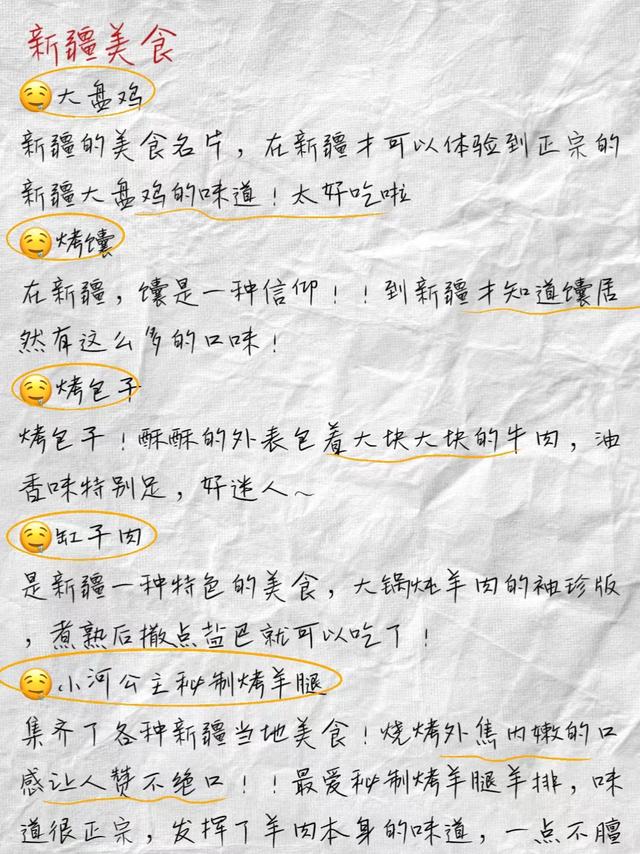 新疆美食
🤤大盘鸡
新疆的美食名片，在新疆才可以体验到正宗的
新疆大盘鸡的味道！太好吃啦
🤤烤馕
在新疆，馕是一种信仰！！到新疆才知道馕居
然有这么多的口味！
🤤烤包子
烤包子！酥酥的外表包着大块大块的牛肉，油
香味特别足，好迷人～
🤤缸子肉
是新疆一种特色的美食，大锅炖羊肉的袖珍版
，煮熟后撒点盐巴就可以吃了！
🤤小河公主秘制烤羊腿
集齐了各种新疆当地美食！烧烤外焦内嫩的口
感让人赞不绝口！！最爱秘制烤羊腿羊排，味
道很正宗，发挥了羊肉本身的味道，一点不膻